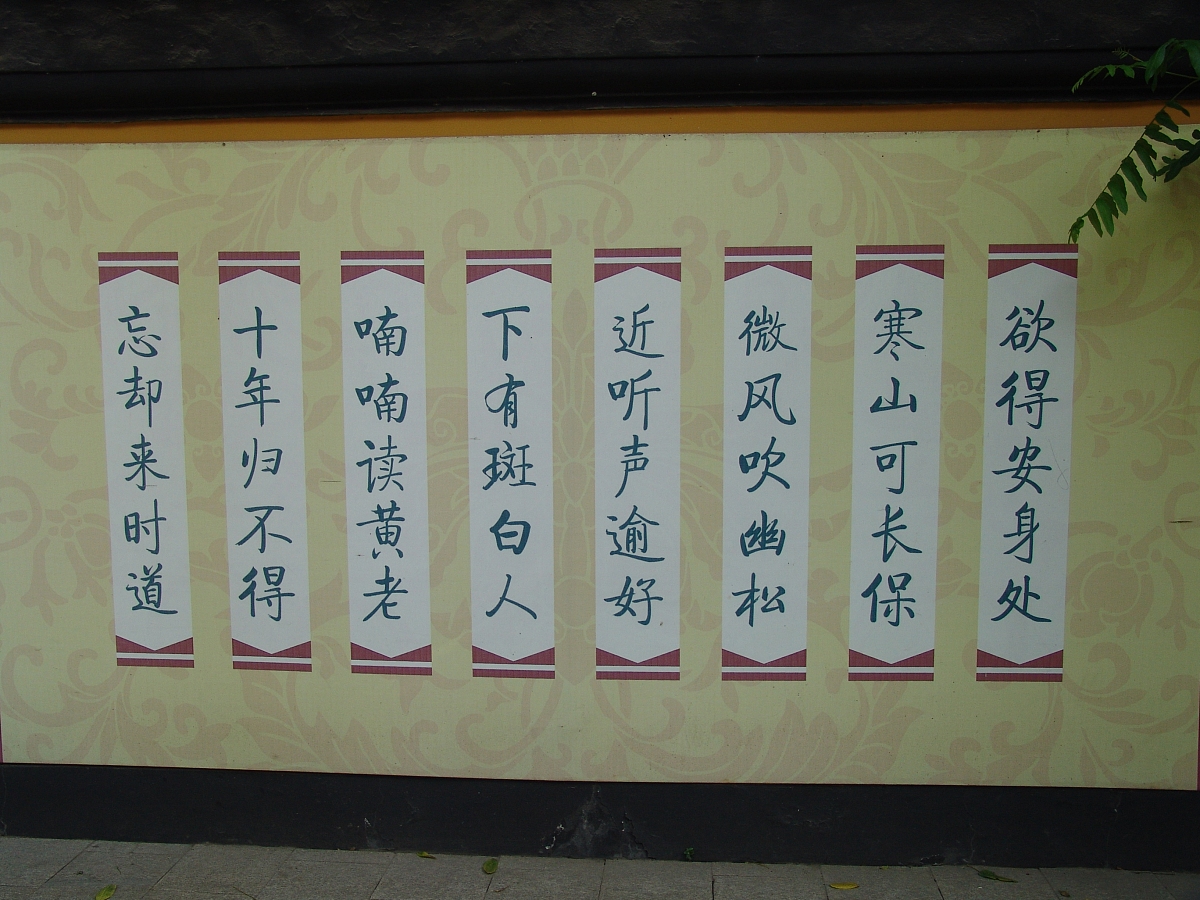 欲得安身处
寒山可长保
微风吹幽松
近听声逾好
下有斑白人
喃喃读黄老
十年归不得
忘却来时道